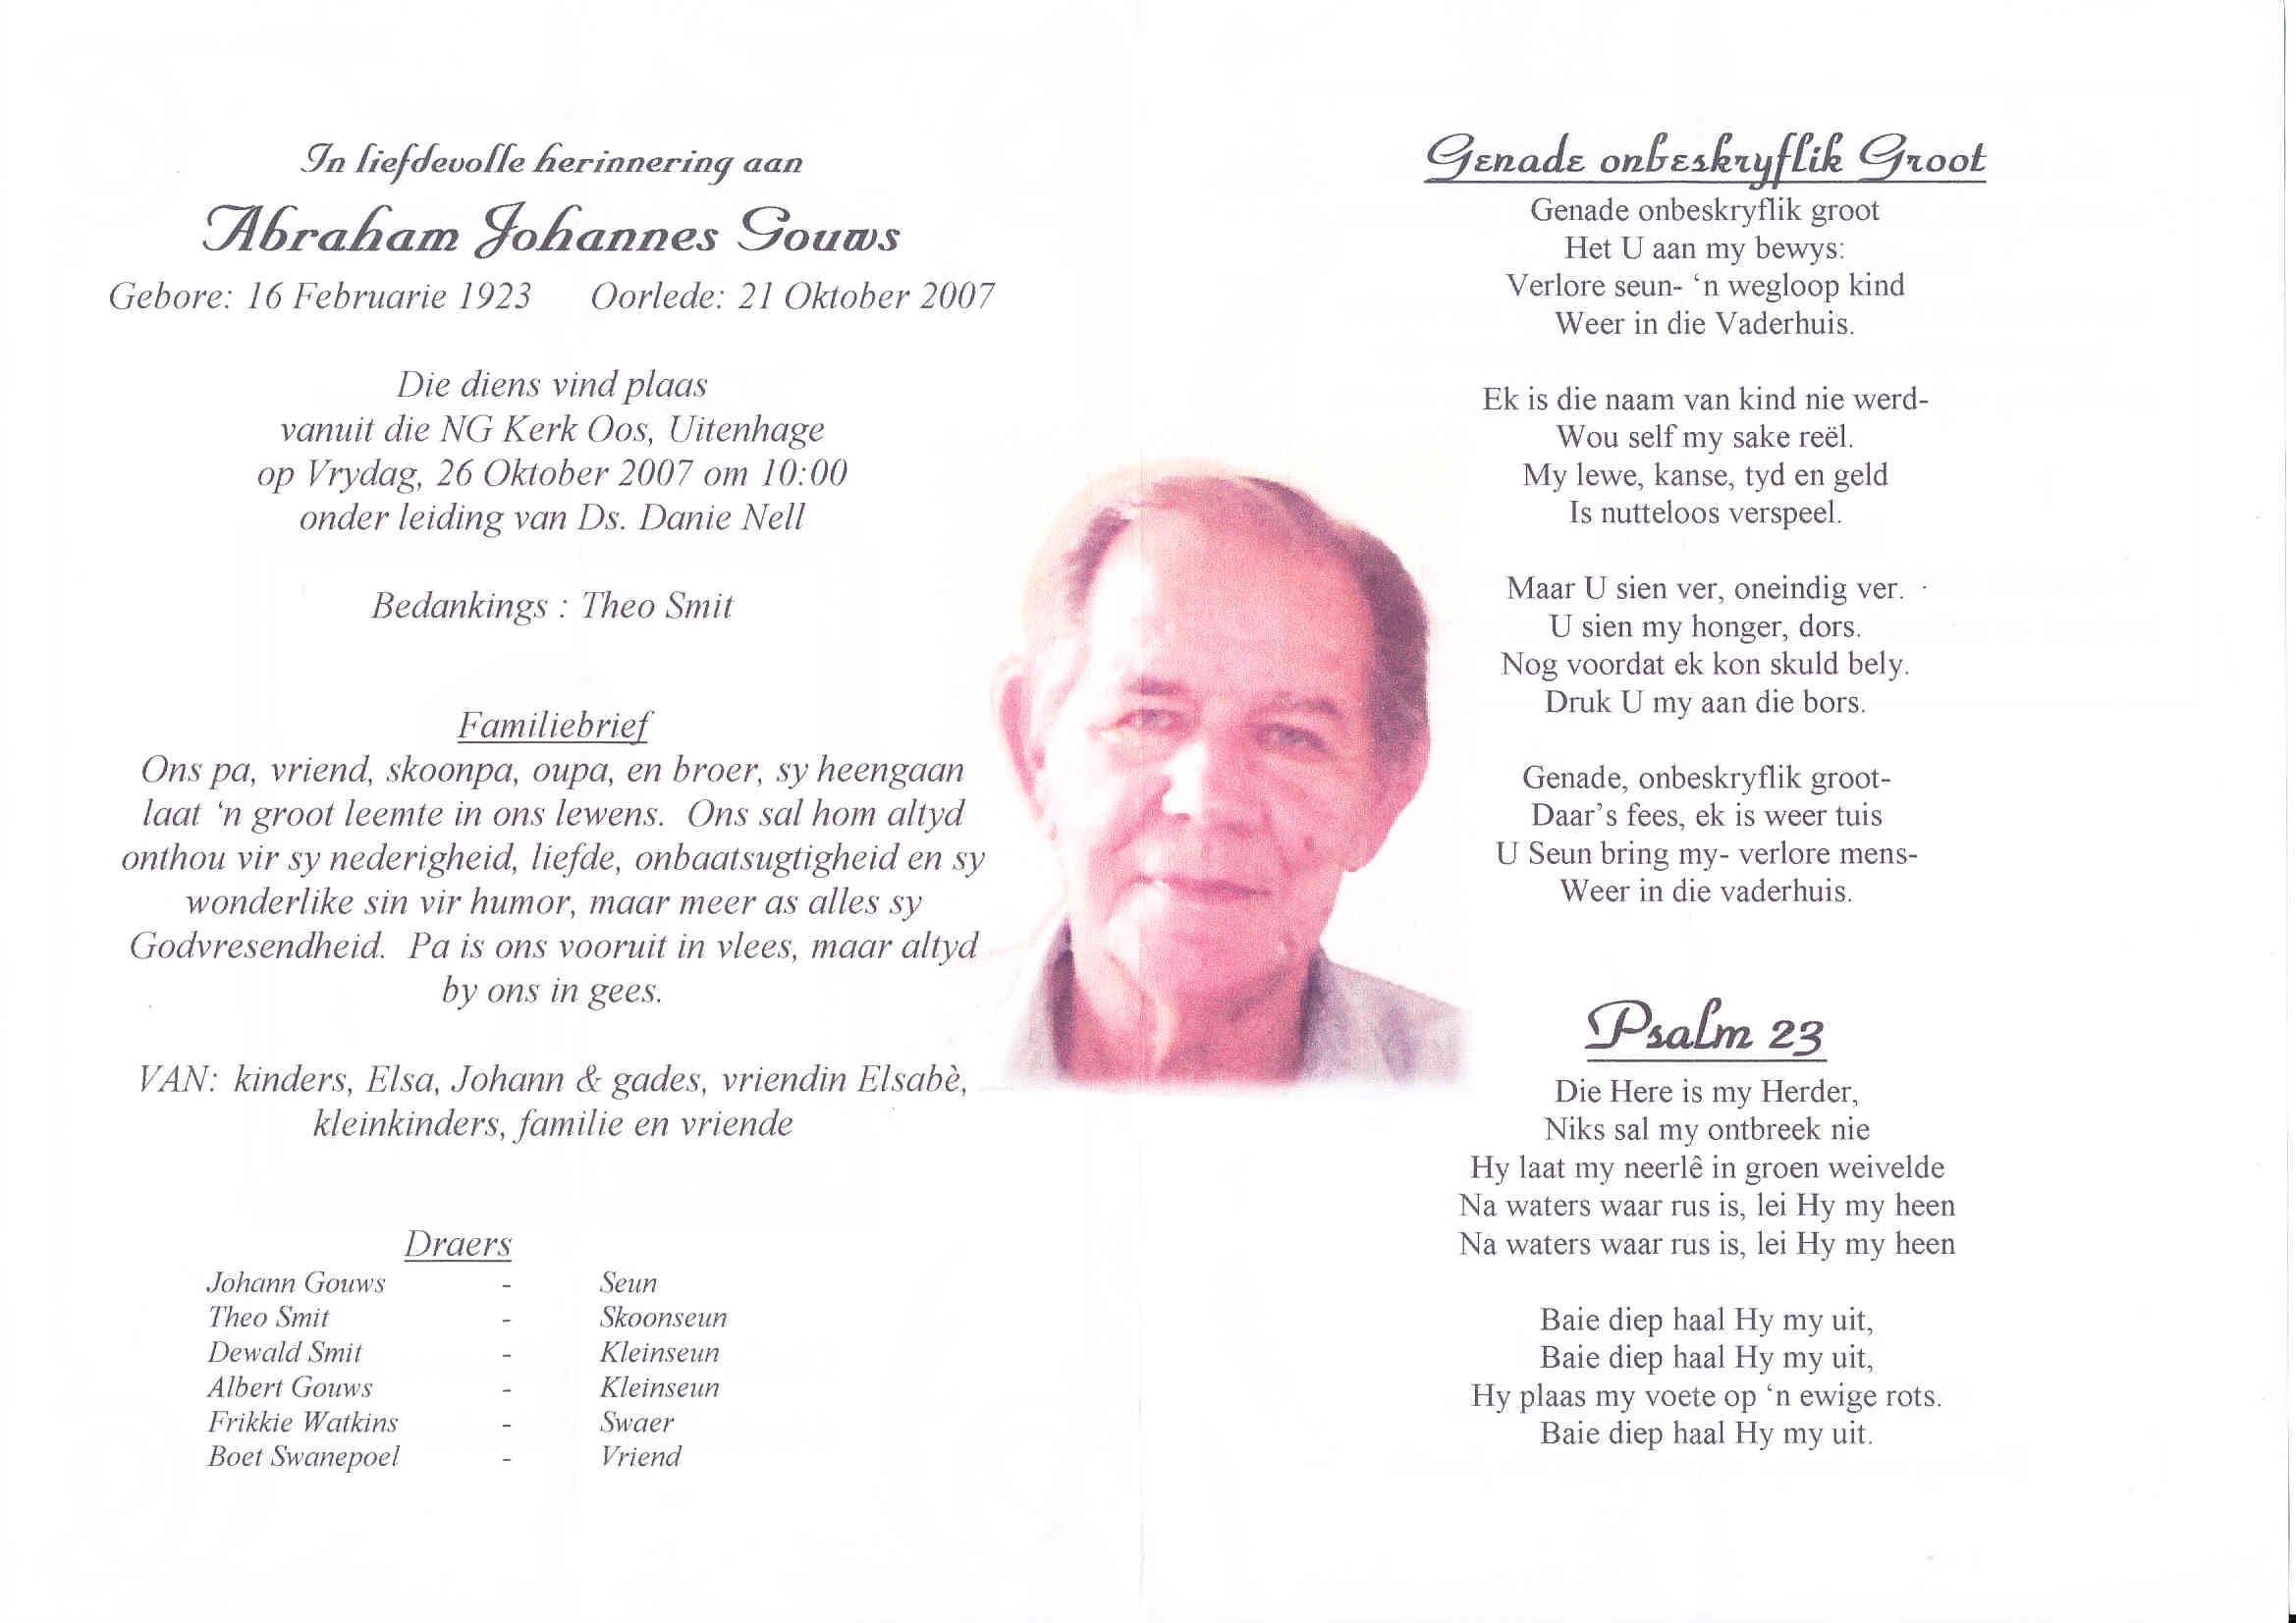 In liefdevolle herinnering aan
Abraham Johannes Gouws
Gebore: 16 Februarie 1923 Oorlede: 21 Oktober 2007
Die diens vind plaas
vanuit die NG Kerk Oos, Uitenhage
op Vrydag, 26 Oktober 2007 om 10:00
onder leiding van Ds. Danie Nell
Bedankings : Theo Smit
Familiebrief
Ons pa, vriend, skoonpa, oupa, en broer, sy heengaan
laat ‘n groot leemte in ons lewens. Ons sal hom altyd
onthou vir sy nederigheid, liefde, onbaatsugtigheid en sy
wonderlike sin vir humor, maar meer as alles sy
Godvresendheid. Pa is ons vooruit in vlees, maar altyd
by ons in gees.
VAN: kinders, Elsa, Johann & gades, vriendin Elsabè,
kleinkinders, familie en vriende
Draers
Johann Gouws - Seun
Theo Smit - Skoonseun
Dewald Smit - Kleinseun
Albert Gouws - Kleinseun
Frikkie Watkins - Swaer
Boet Swanepoel - Vriend
Genade onbeskryflik Groot
Genade onbeskryflik groot
Het U aan my bewys:
Verlore seun- ‘n wegloop kind
Weer in die Vaderhuis.
Ek is die naam van kind nie werd-
Wou self my sake reël.
My lewe, kanse, tyd en geld
Is nutteloos verspeel.
Maar U sien ver, oneindig ver.
U sien my honger, dors.
Nog voordat ek kon skuld bely.
Druk U my aan die bors.
Genade, onbeskryflik groot-
Daar’s fees, ek is weer tuis
U Seun bring my- verlore mens-
Weer in die vaderhuis.
Psalm 23
Die Here is my Herder,
Niks sal my ontbreek nie
Hy laat my neerlê in groen weivelde
Na waters waar rus is, lei Hy my heen
Na waters waar rus is, lei Hy my heen
Baie diep haal Hy my uit,
Baie diep haal Hy my uit,
Hy plaas my voete op ‘n ewige rots.
Baie diep haal Hy my uit.